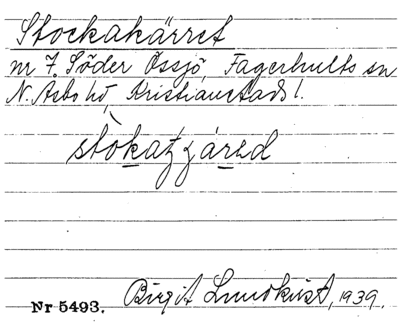 Stockakärret
nr 7. Söder Össjö, Fagerhults sn
N. Asbo hd, Kristianstads l.
Nr 5493. Birgit Lundkvist, 1939.